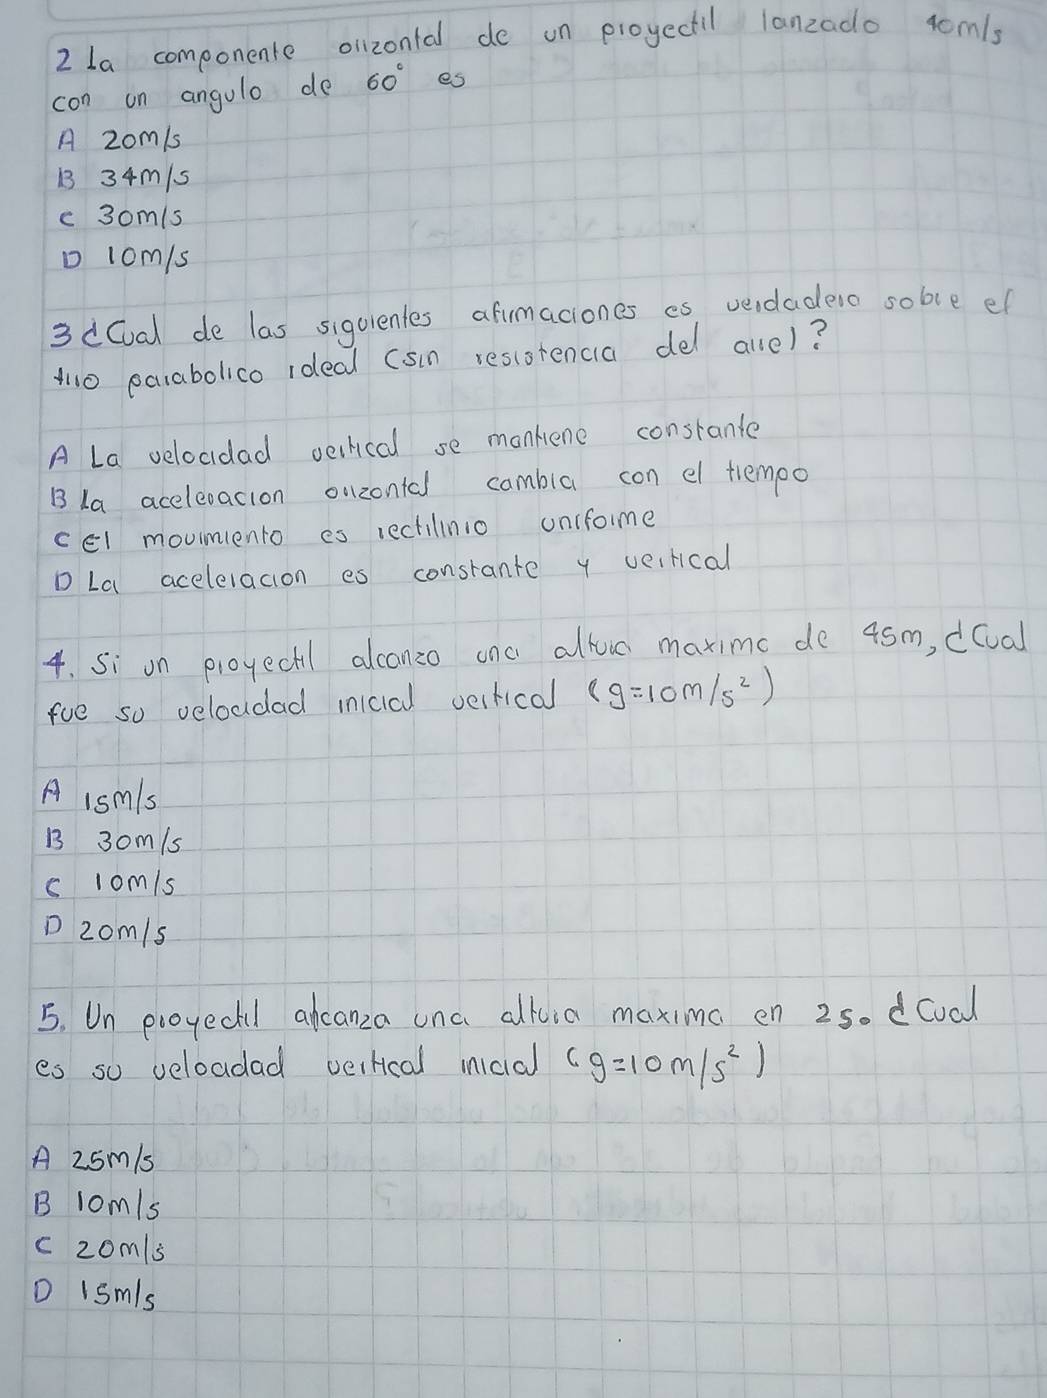 2 La componente orizontal de un proyectil lanzado 40m/s
con un angulo de 60° es
A 20m/s
B 34m/s
C 30m/s
D 10m/s
3 ¿Cual de las siguientes afirmaciones es verdadero sobre el
tiro parabolico ideal (sin resistencia del aire)?
A La velocidad vertical se mantiene constante
B La aceleracion orizontal cambia con el tiempo
C El movimiento es rectilinio uniforme
D La aceleracion es constante y vertical
4. Si un proyectil alcanzo una altura maxima de 45m, ¿Cual
fue su velocidad inicial vertical (g=10m/s²)
A 15m/s
B 30m/s
C 10m/s
D 20m/s
5. Un proyectil alcanza una altura maxima en 2s. ¿Cual
es su velocidad vertical inicial (g=10m/s²)
A 25m/s
B 10m/s
C 20m/s
D 15m/s